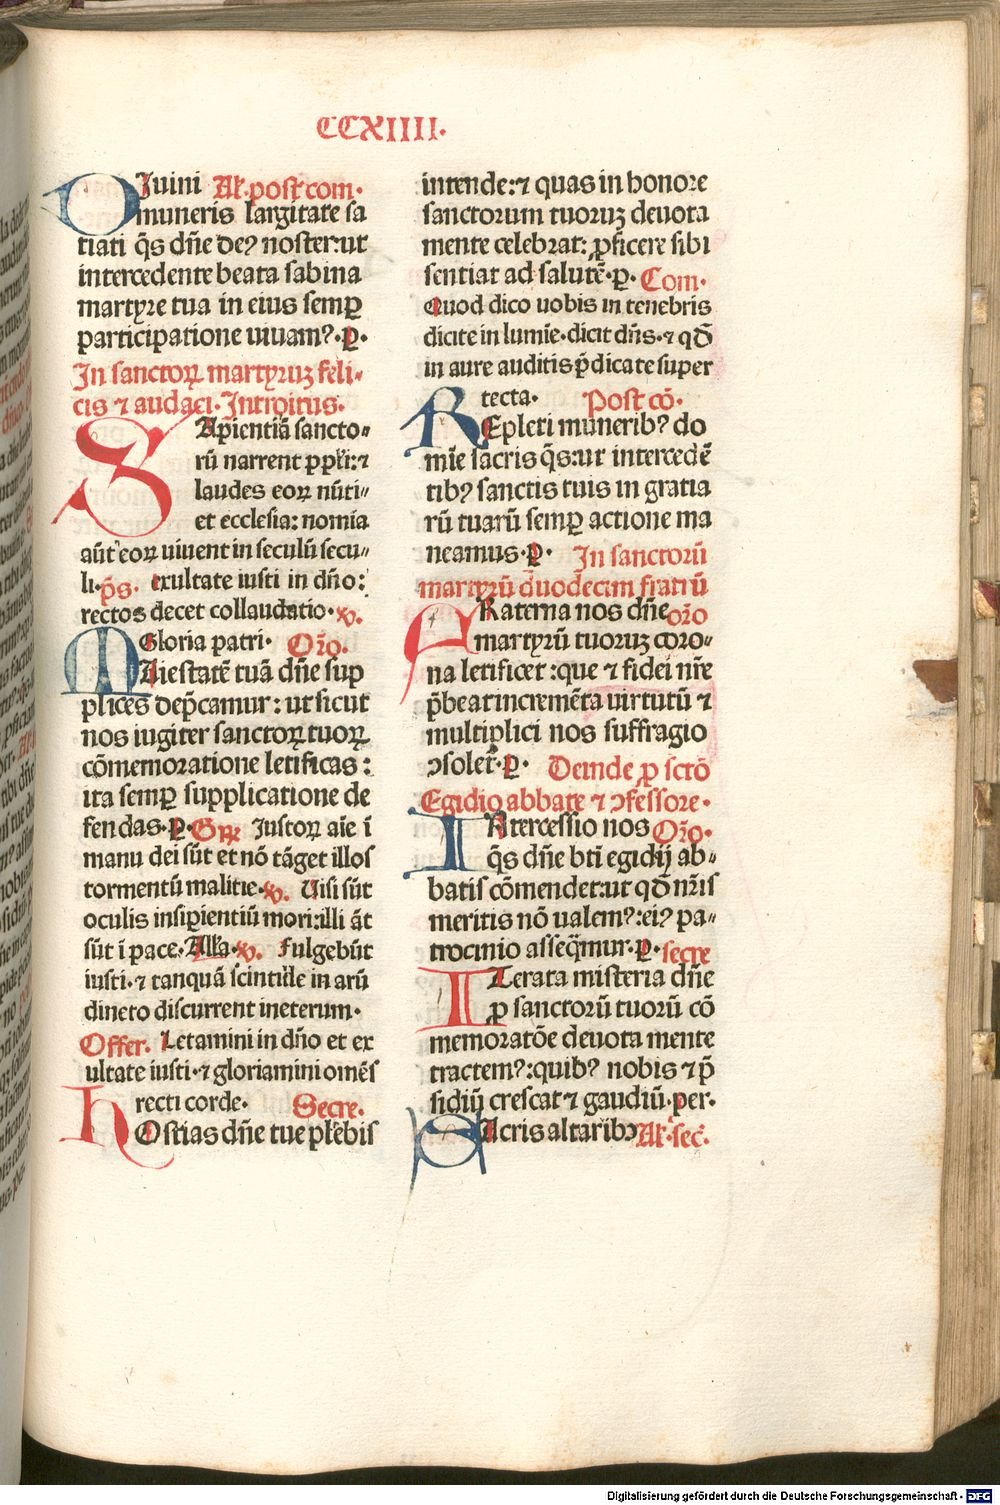 CCXIIII.
DIuini Al'. post com.
muneris largitate sa
tiati q̄s dn̄e de⁹ noster: ut
intercedente beata sabina
martyre tua in eius semꝑ
participatione uiuam⁹. P.
In sanctoꝝ martyruꝫ feli-
cis ⁊ audacti. Introitus.
SApientiā sancto-
rū narrent pp̄li: ⁊
laudes eoꝝ nūti-
et ecclesia: nomia
aūt eoꝝ uiuent in seculū secu-
li. p̄s. Exultate iusti in dn̄o:
rectos decet collaudatio. v̄.
Gloria patri. Or̄o.
MAiestatē tuā dn̄e sup
plices dep̄camur: ut sicut
nos iugiter sanctoꝝ tuoꝝ
cōmemoratione letificas:
ita semꝑ supplicatione de
fendas. P. Gr̄. Iustoꝝ aīe ī
manu dei sūt et nō tāget illos
tormentū malitie. v̄. Uisi sūt
oculis insipientiū mori: illi āt
sūt ī pace. Alla. v̄. Fulgebūt
iusti. ⁊ tanquā scintille in arū
dineto discurrent ineternum.
Offer. Letamini in dn̄o et ex
ultate iusti. ⁊ gloriamini omēs
recti corde. Secre.
HOstias dn̄e tue plebis
intende: ⁊ quas in honore
sanctorum tuoruꝫ deuota
mente celebrat: ꝓficere sibi
sentiat ad salutē. P. Com.
Quod dico uobis in tenebris
dicite in lumīe. dicit dn̄s. ⁊ qđ
in aure auditis p̄dicate super
tecta. Post cō.
REpleti munerib⁹ do
mīe sacris q̄s: ut intercedē
tib⁹ sanctis tuis in gratia
rū tuarū semꝑ actione ma
neamus. P. In sanctorū
martyrū duodecim fratrū
FRaterna nos dn̄e or̄o
martyrū tuoruꝫ coro-
na letificet: que ⁊ fidei nr̄e
p̄beat incremēta uirtutū ⁊
multiplici nos suffragio
ꝯsolet̄. P. Deinde ꝓ sctō
Egidio abbate ⁊ ꝯfessore.
INtercessio nos Or̄o.
q̄s dn̄e bti egidij ab-
batis cōmendet: ut qđ nr̄is
meritis nō ualem⁹: ei⁹ pa-
trocinio asseq̄mur. P. secre
ITerata misteria dn̄e
ꝓ sanctorū tuorū cō
memoratōe deuota mente
tractem⁹: quib⁹ nobis ⁊ p̄
sidiū crescat ⁊ gaudiū. per.
SAcris altaribꝰ Al'. sec̄.
Digitalisierung gefördert durch die Deutsche Forschungsgemeinschaft - DFG